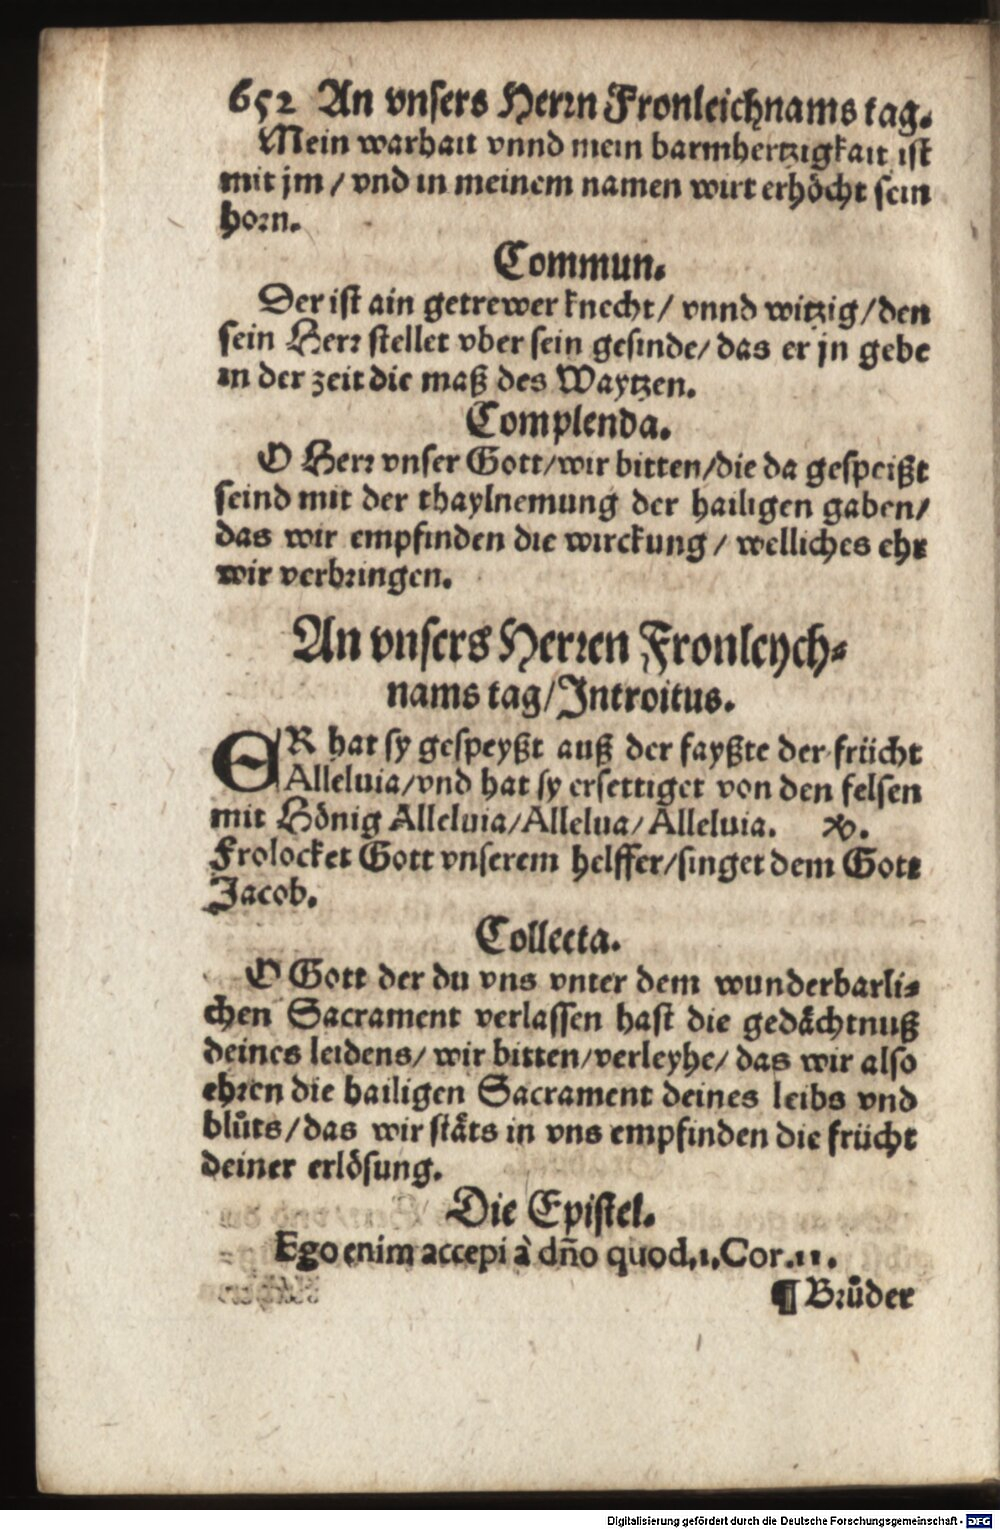 652 An vnsers Herꝛn Fronleichnams tag.
Mein warhait vnnd mein barmhertzigkait ist
mit jm / vnd in meinem namen wirt erhöcht sein
hoꝛn.
Commun.
Der ist ain getrewer knecht / vnnd witzig / den
sein Herꝛ stellet vber sein gesinde / das er jn gebe
in der zeit die maß des Waytzen.
Complenda.
O Herꝛ vnser Gott / wir bitten / die da gespeißt
seind mit der thaylnemung der hailigen gaben /
das wir empfinden die wirckung / welliches ehꝛ
wir verbꝛingen.
An vnsers Herꝛen Fronleych⸗
nams tag / Introitus.
ER hat sy gespeyßt auß der fayßte der frücht
Alleluia / vnd hat sy ersettiget von den felsen
mit Hönig Alleluia / Allelua / Alleluia. ꝟ.
Frolocket Gott vnserem helffer / singet dem Gott
Jacob.
Collecta.
O Gott der du vns vnter dem wunderbarli⸗
chen Sacrament verlassen hast die gedaͤchtnuß
deines leidens / wir bitten / verleyhe / das wir also
ehꝛen die hailigen Sacrament deines leibs vnd
bluͦts / das wir staͤts in vns empfinden die frücht
deiner erlösung.
Die Epistel.
Ego enim accepi à dn̄o quod. 1. Cor. 11.
¶ Bꝛuͤder
Digitalisierung gefördert durch die Deutsche Forschungsgemeinschaft - DFG